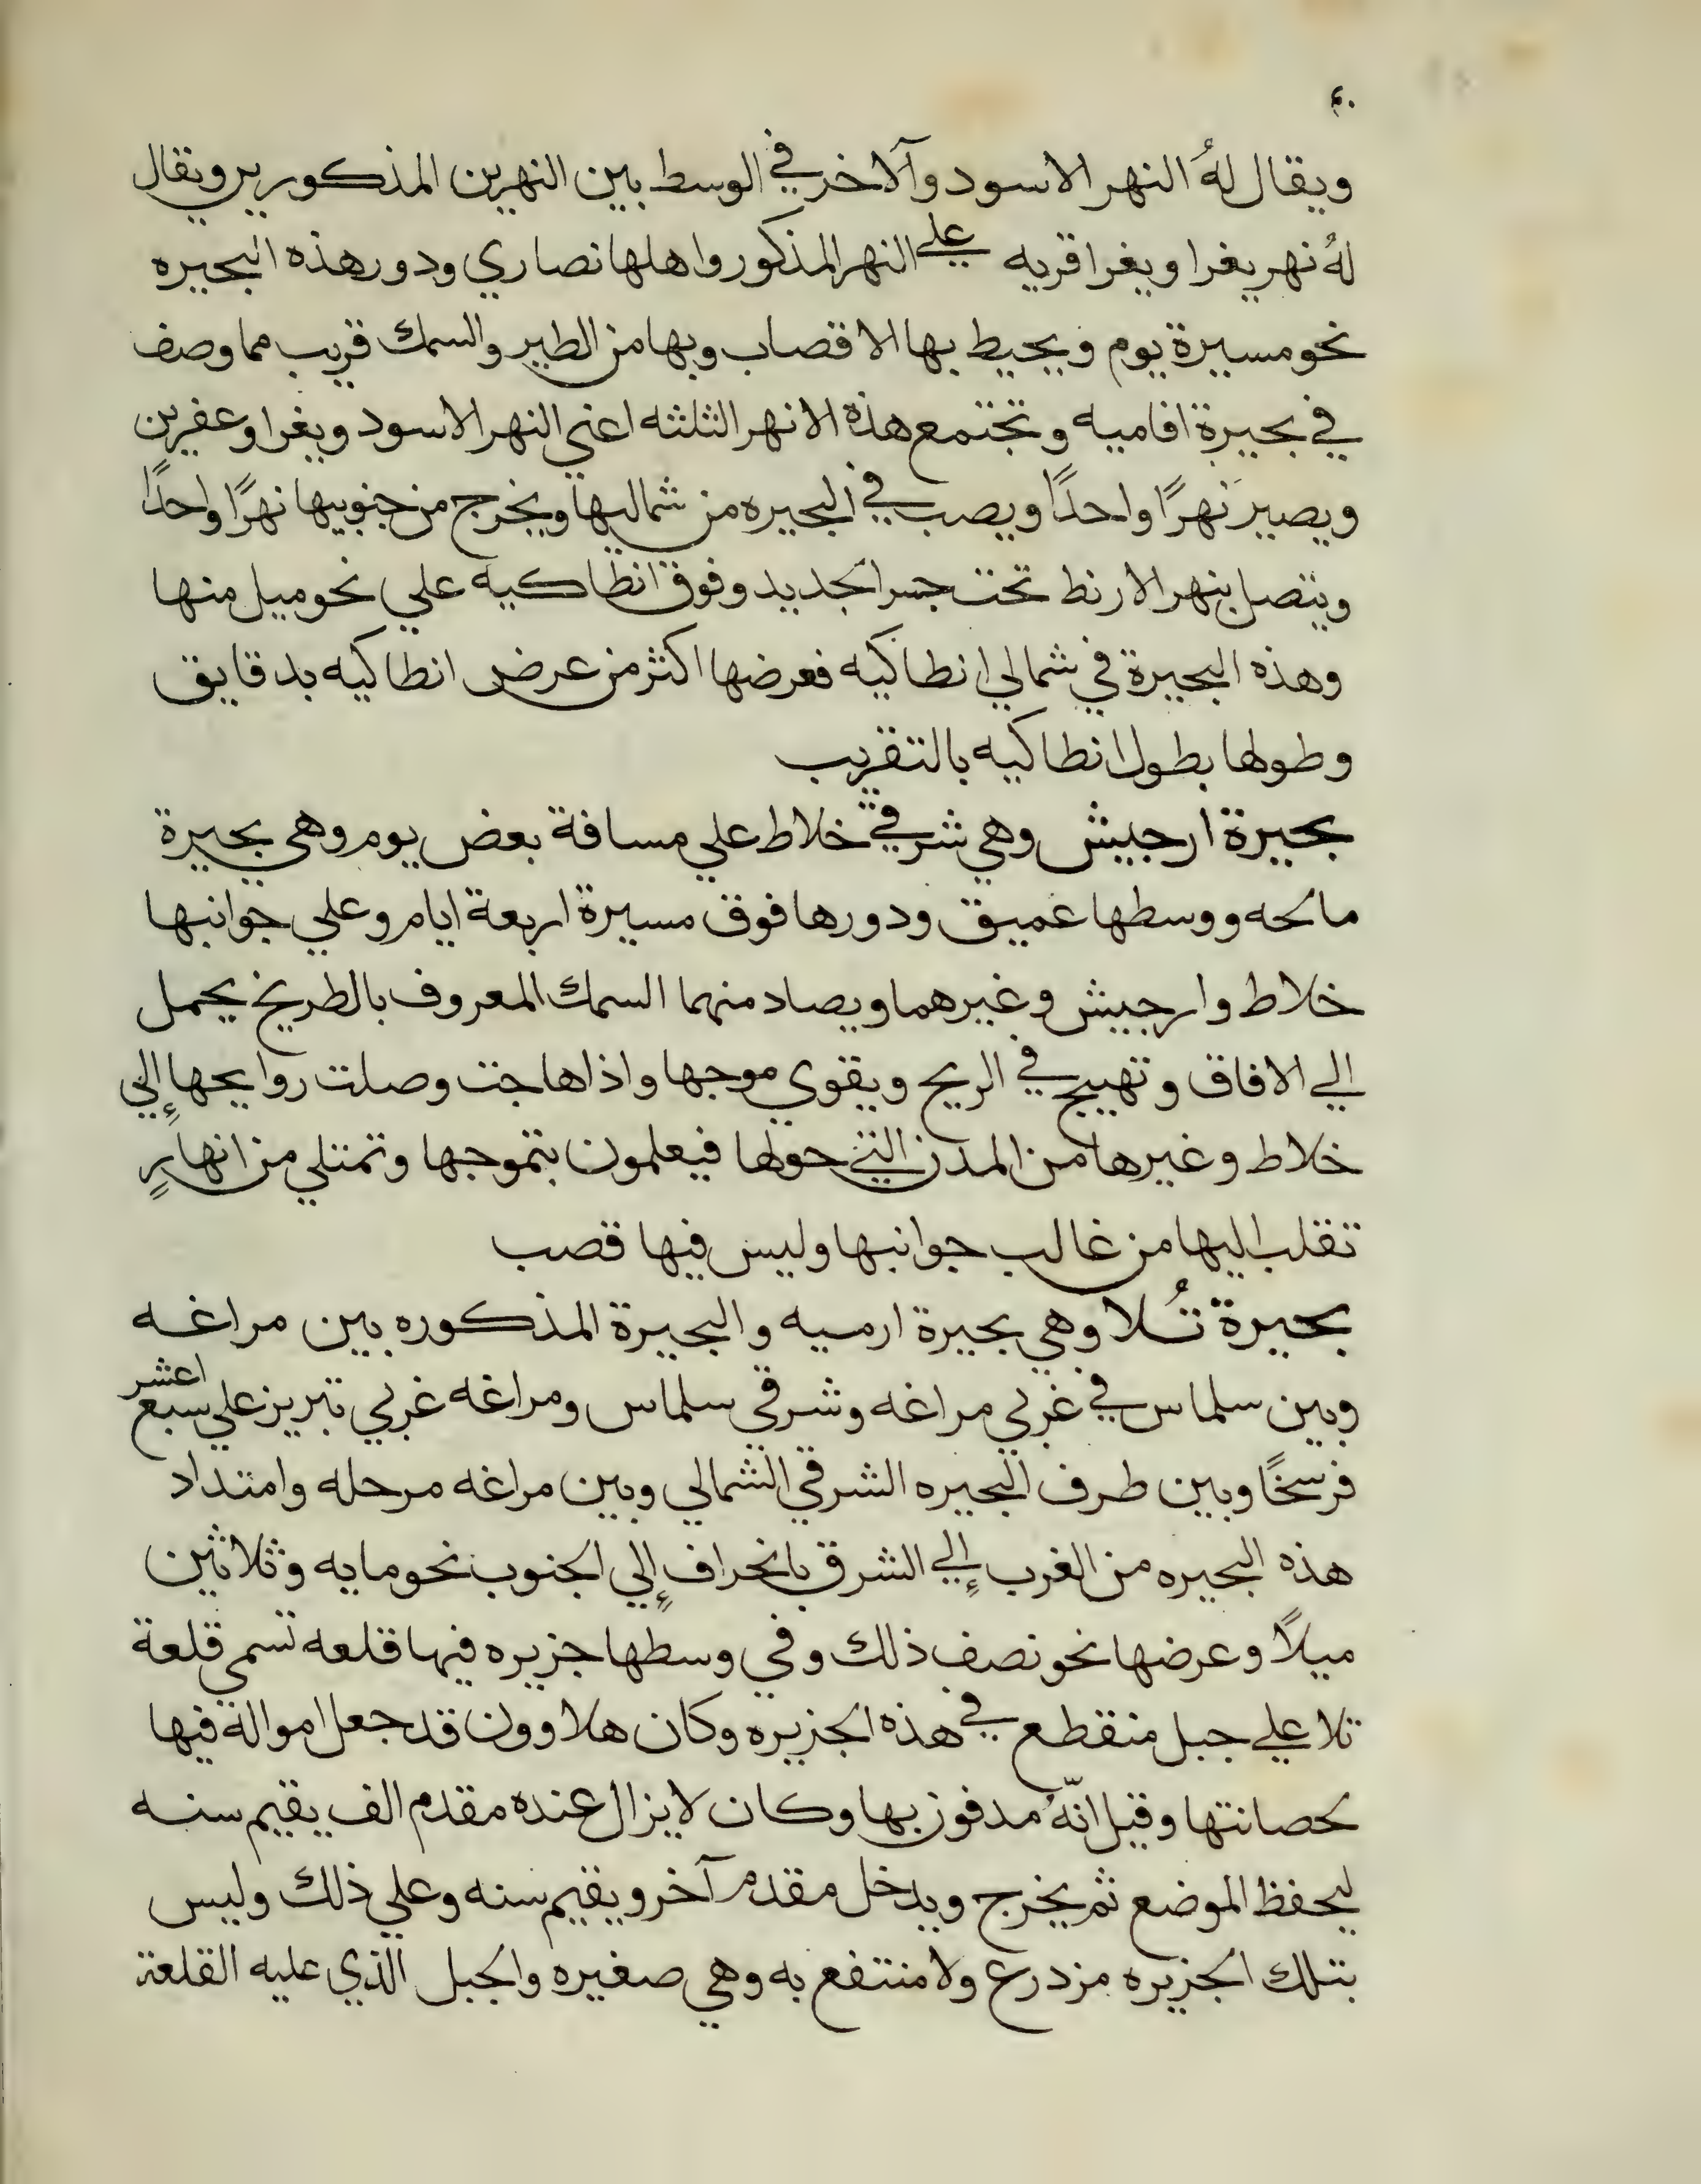 ٤٠
ويقال لهُ النهر الاسود وآلاخر في الوسط بين النهرين المذكورين ويقال
لهُ نهر يغرا ويغرا قريه علي النهر المذكور واهلها نصاري ودور هذه البحيره
نحو مسيرة يوم ويحيط بها الاقصاب وبها من الطير والسمك قريب مما وصف
في بحيرة افاميه وتجتمع هذه الانهر الثلثه اعني النهر الاسود ويغرا وعفرين
ويصير نهرًا واحدًا ويصب في البحيره من شماليها ويخرج من جنوبيها نهرًا واحدًا
ويتصل بنهر الارنط تحت جسر الجديد وفوق انطاكيه علي نحو ميل منها
وهذه البحيرة في شمالي انطاكيه فعرضها اكثر من عرض انطاكيه بدقايق
وطولها بطول انطاكيه بالتقريب
بحيرة ارجيش وهي شرقي خلاط علي مسافة بعض يوم وهي بحيرة
مالحه ووسطها عميق ودورها فوق مسيرة اربعة ايام وعلي جوانبها
خلاط وارجيش وغيرهما ويصاد منهما السمك المعروف بالطريخ يحمل
الي الافاق وتهيج في الريح ويقوي موجها واذا هاجت وصلت روايحها إلي
خلاط وغيرها من المدن التي حولها فيعلمون بتموجها وتمتلي من انهارٍ
تقلب اليها من غالب جوانبها وليس فيها قصب
بحيرة تُلا وهي بحيرة ارميه والبحيرة المذكوره بين مراغه
وبين سلماس في غربي مراغه وشرقي سلماس ومراغه غربي تبريز علي سبع اعشر
فرسخًا وبين طرف البحيره الشرقي الشمالي وبين مراغه مرحله وامتداد
هذه البحيره من الغرب إلي الشرق بانحراف إلي الجنوب نحو مايه وثلاثين
ميلاً وعرضها نحو نصف ذلك وفي وسطها جزيره فيها قلعه تسمي قلعة
تلا علي جبل منقطع في هذه الجزيره وكان هلاوون قد جعل امواله فيها
لحصانتها وقيل انّهُ مدفون بها وكان لايزال عنده مقدم الف يقيم سنه
ليحفظ الموضع ثم يخرج ويدخل مقدم آخر ويقيم سنه وعلي ذلك وليس
بتلك الجزيره مزدرع ولا منتفع به وهي صغيره والجبل الذي عليه القلعة